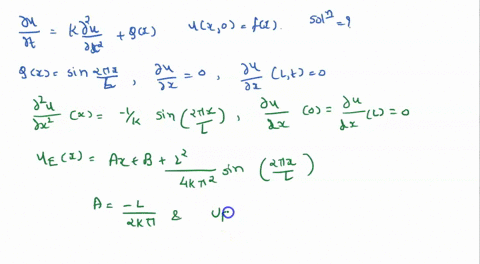 ∂u/∂t = k ∂²u/∂x² + Q(x)   u(x,0) = f(x).   solⁿ = ?
Q(x) = sin 2πx/L , ∂u/∂x = 0 , ∂u/∂x (L,t) = 0
∂²u/∂x² (x) = -1/k sin(2πx/L) , ∂u/dx (0) = ∂u/dx (L) = 0
u_E(x) = Ax + B + L²/4kπ² sin (2πx/L)
A = -L/2kπ &